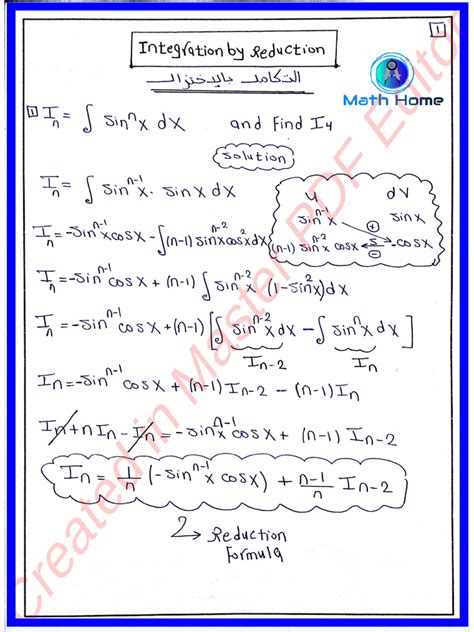 1
Integration by Reduction
التكامل بالإختزال
Math Home
1 Iₙ = ∫ sinⁿx dx and find I₄
Solution
Iₙ = ∫ sinⁿ⁻¹x · sin x dx
u dv
sinⁿ⁻¹x sinx
⊕
(n-1) sinⁿ⁻²x cosx ∫ -cosx
⊖
Iₙ = -sinⁿ⁻¹x cosx - ∫(n-1) sinⁿ⁻²x cos²x dx
Iₙ = -sinⁿ⁻¹x cosx + (n-1) ∫ sinⁿ⁻²x (1-sin²x) dx
Iₙ = -sinⁿ⁻¹x cosx + (n-1) [∫ sinⁿ⁻²x dx - ∫ sinⁿx dx]
Iₙ₋₂ Iₙ
Iₙ = -sinⁿ⁻¹x cosx + (n-1) Iₙ₋₂ - (n-1) Iₙ
Iₙ + n Iₙ - Iₙ = -sinⁿ⁻¹x cosx + (n-1) Iₙ₋₂
Iₙ = 1/n (-sinⁿ⁻¹x cosx) + n-1/n Iₙ₋₂
Reduction
Formula
Created in Master PDF Editor